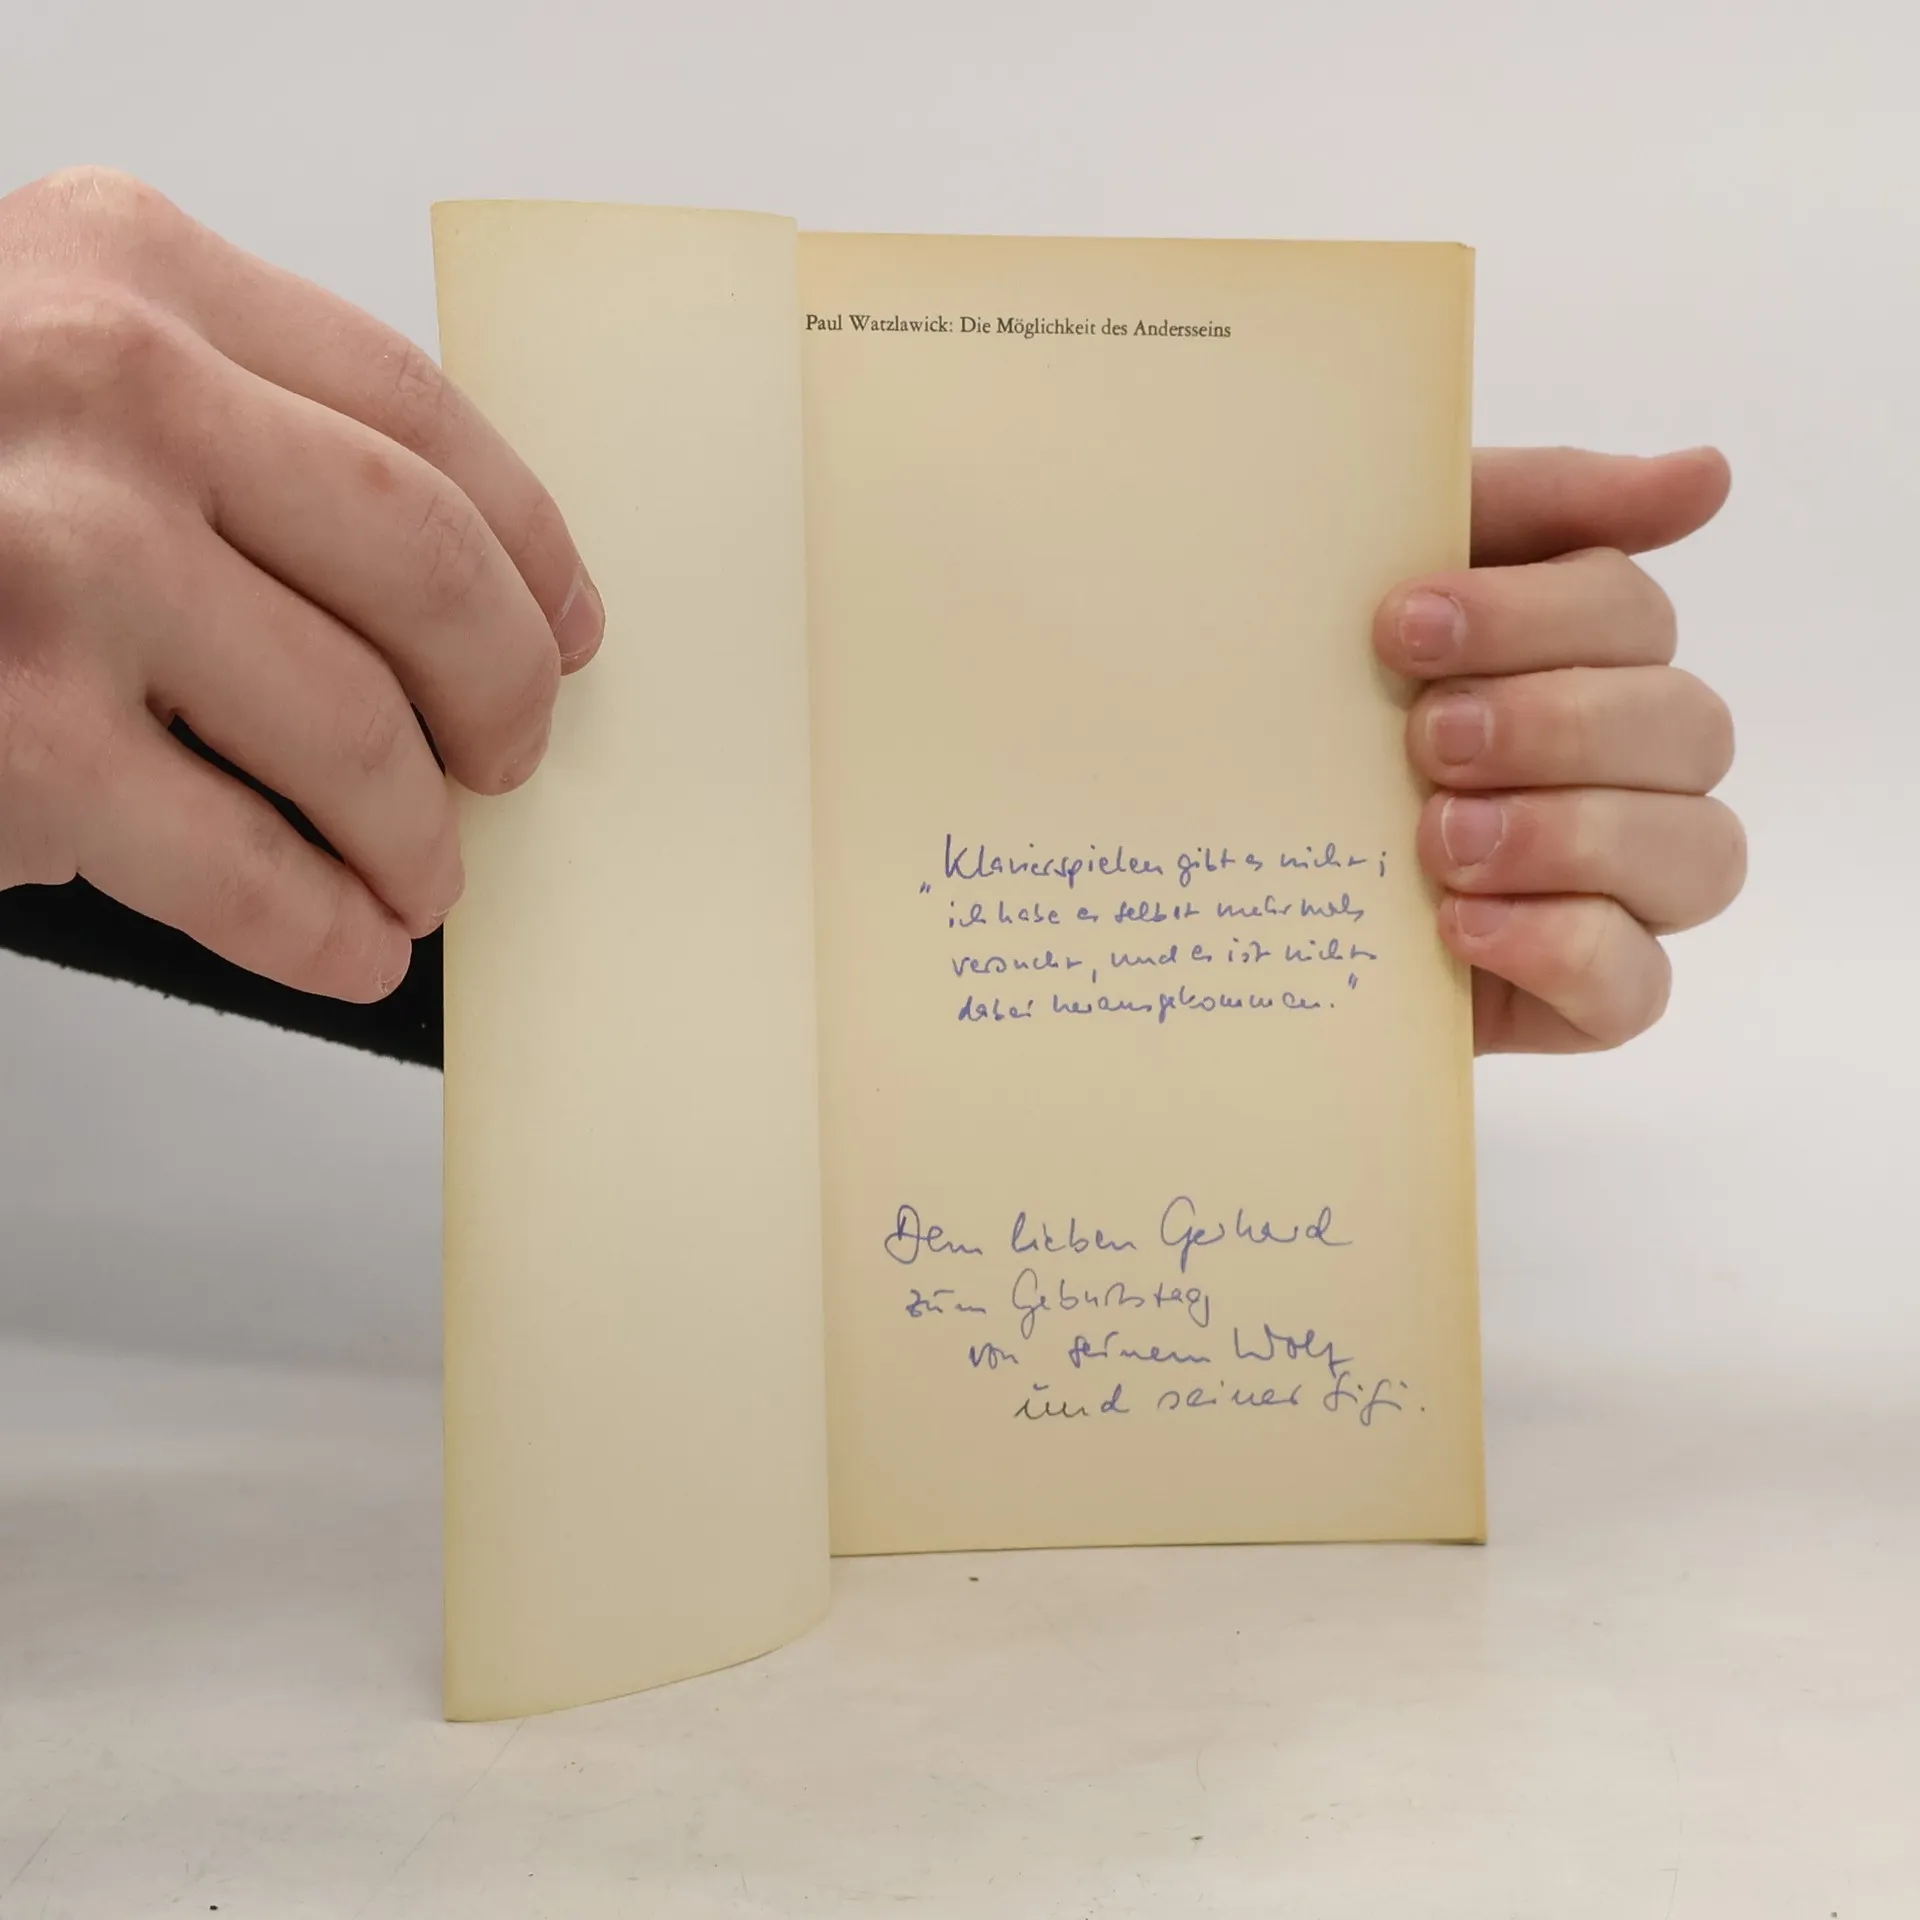 Paul Watzlawick: Die Möglichkeit des Andersseins
„Klavierspielen gibt es nicht;
ich habe es selbst mehrmals
versucht, und es ist nichts
dabei herausgekommen."
Dem lieben Gerhard
zum Geburtstag
von seinem Wolf
und seiner Sisi.